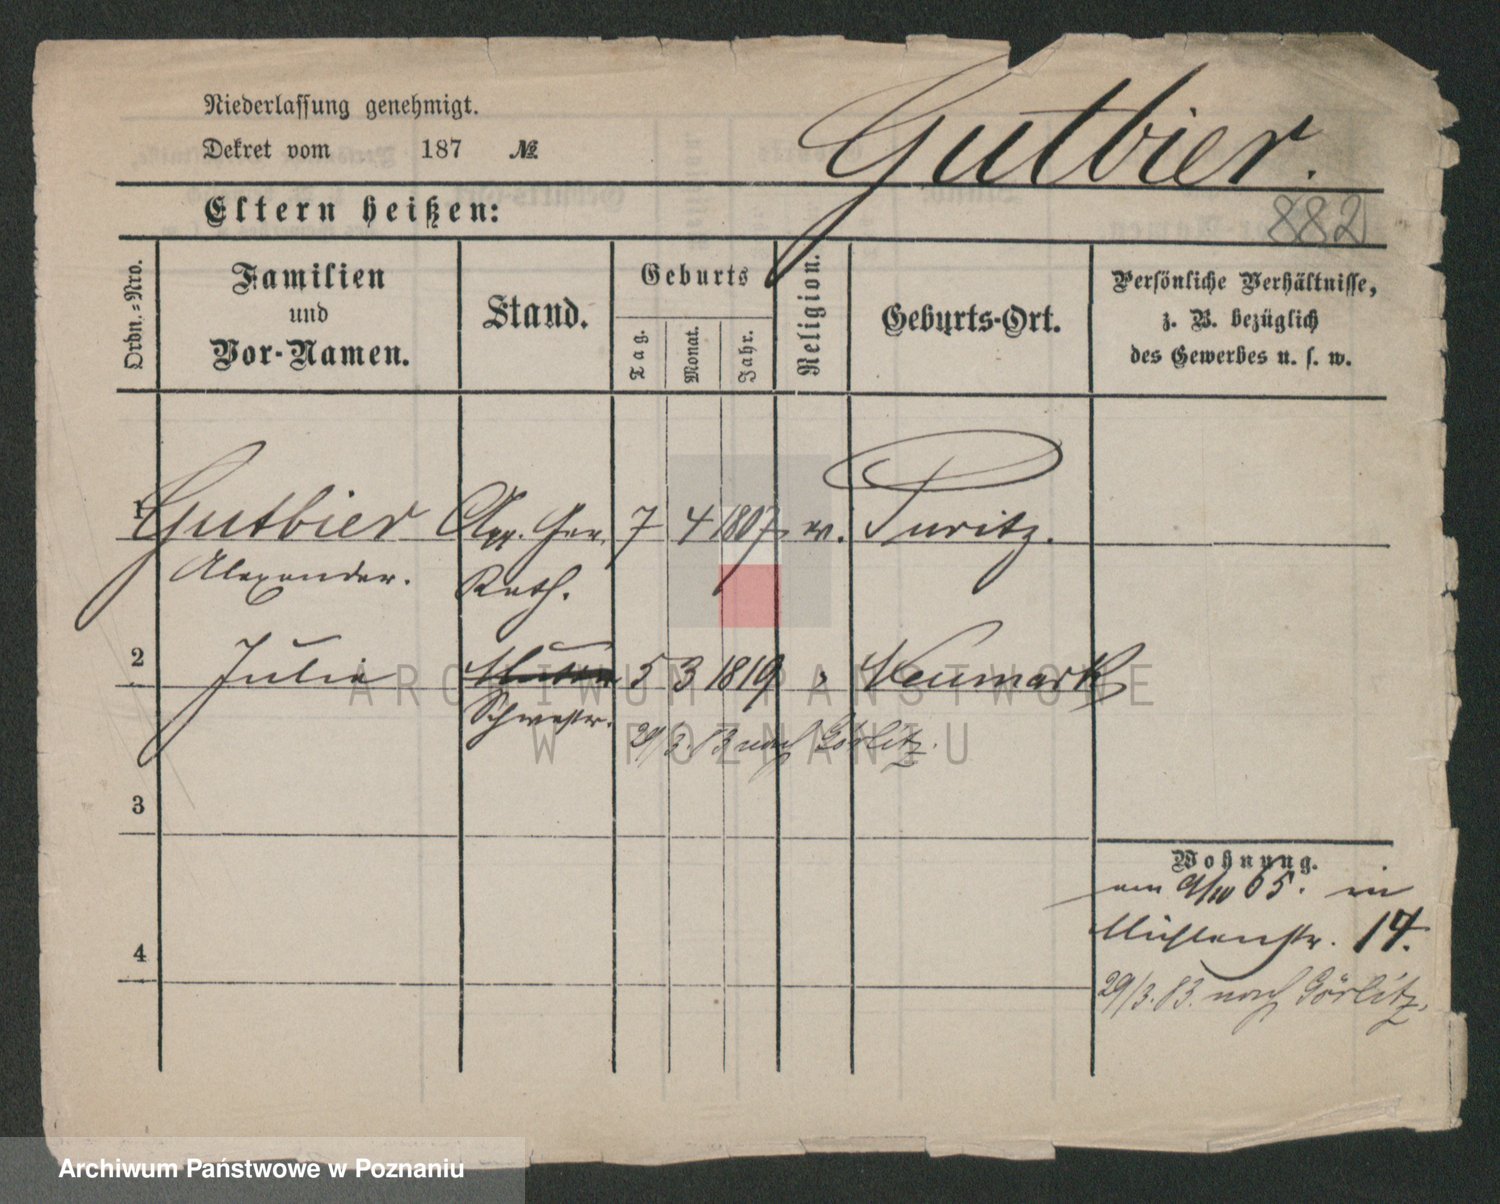 Niederlassung genehmigt.
Dekret vom 187 №
Gutbier.
882
Eltern heißen:
Ordn.-Nro.
Familien und Vor-Namen.
Stand.
Geburts
Tag.
Monat.
Jahr.
Religion.
Geburts-Ort.
Persönliche Verhältnisse,
z. B. bezüglich
des Gewerbes u. s. w.
1 Gutbier App. Ger. 7 4 1807 ev. Puritz.
Alexander. Rath.
2 Julie 5 3 1819 " Neumark
Schwester. 29/3. 83 nach Görlitz.
3
4
Wohnung.
am 9/10 65. in
Mühlenstr. 14.
29/3. 83. nach Görlitz.
ARCHIWUM PAŃSTWOWE
W POZNANIU
Archiwum Państwowe w Poznaniu